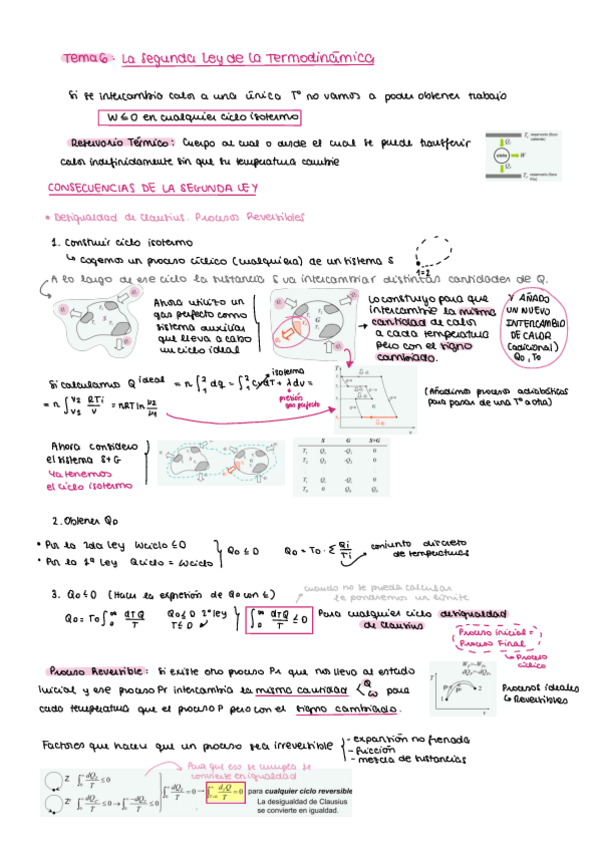 Tema 6: La Segunda Ley de la Termodinámica
Si se intercambia calor a una única Tº no vamos a poder obtener trabajo
W ≤ 0 en cualquier ciclo isotermo
Reservorio Térmico: Cuerpo al cual o desde el cual se puede transferir
calor indefinidamente sin que su temperatura cambie
CONSECUENCIAS DE LA SEGUNDA LEY
• Desigualdad de Clausius. Procesos Reversibles
1. Construir ciclo isotermo
↳ Cogemos un proceso cíclico (cualquiera) de un sistema S
1=2
A lo largo de ese ciclo la sustancia S va intercambiar distintas cantidades de Q.
Ahora utilizo un
gas perfecto como
sistema auxiliar
que lleva a cabo
un ciclo ideal
Lo construyo para que
intercambie la misma
cantidad de calor
a cada temperatura
pero con el signo
cambiado.
Y AÑADO
UN NUEVO
INTERCAMBIO
DE CALOR
(adicional)
Q₀, T₀
isotermo
Si calculamos Q ideal = n ∫₁² dq = ∫₁² CvdT + λdv =
presión
gas perfecto
= n ∫ RTi/V = nRT ln V2/V1
(Añadimos procesos adiabáticos
para pasar de una Tª a otra)
Ahora considero
el sistema S+G
Ya tenemos
el ciclo isotermo
S G S+G
T₁ Q₁ -Q₁ 0
Tᵢ Qᵢ -Qᵢ 0
T₀ 0 Q₀ Q₀
2. Obtener Q₀
• Por la 2da Ley Wciclo ≤ 0
• Por la 1ª Ley Qciclo = Wciclo
Q₀ ≤ 0 Q₀ = T₀ · Σ Qi/Ti
conjunto discreto
de temperaturas
cuando no se pueda calcular
le pondremos un límite
3. Q₀ ≤ 0 (Hace la expresión de Q₀ con ≤)
Para cualquier ciclo desigualdad
de Clausius
Proceso inicial =
Proceso Final
↳ Proceso
cíclico
Proceso Reversible: Si existe otro proceso Pr que nos lleva al estado
inicial y ese proceso Pr intercambia la misma cantidad < Q W para
cada temperatura que el proceso P pero con el signo cambiado.
Procesos ideales
↳ Reversibles
Factores que hacen que un proceso sea irreversible
- expansión no frenada
- fricción
- mezcla de sustancias
Para que eso se cumpla se
convierte en igualdad
para cualquier ciclo reversible
La desigualdad de Clausius
se convierte en igualdad.